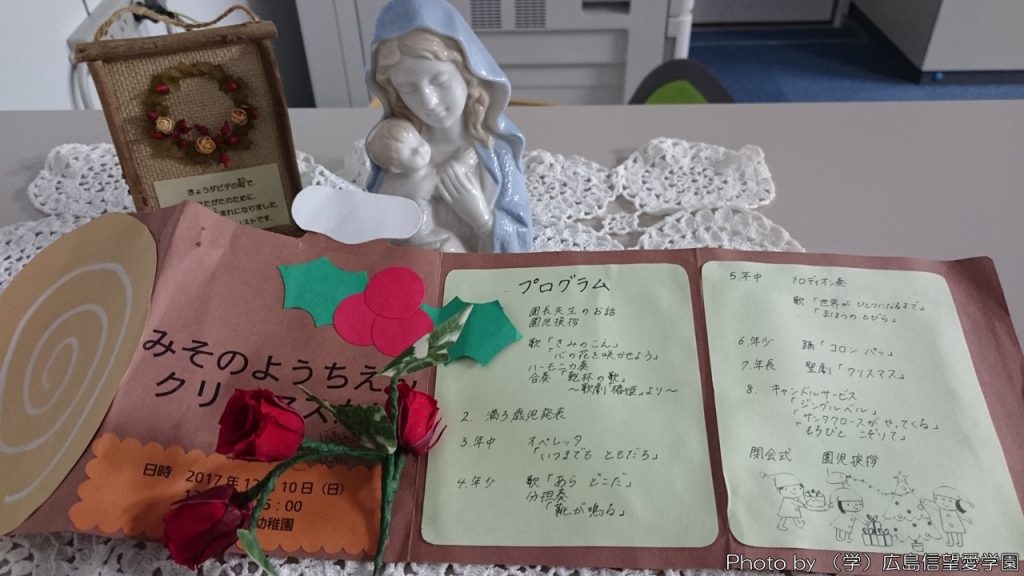 きょうダビデの町で、
たがたのために、
まれになりました。
リストです。
みそのようちえん
クリ マス
日時 2017年12 10日(日)
5:00
幼稚園
プログラム
園長先生のお話
園児挨拶
歌「きみのこえ」
「心の花を咲かせよう」
ハーモニカ奏
合奏 乾杯の歌
~歌劇「椿姫」より~
2. 満3歳児発表
3. 年中 オペレッタ
「いつまでも ともだち」
4. 年少 歌「あら どこだ」
分担奏
「靴が鳴る」
5. 年中 メロディオン奏
歌「世界が ひとつになるまで」
「まほうの とびら」
6. 年少 踊「コロン パッ」
7. 年長 聖劇「クリスマス」
8. キャンドルサービス
「ジングルベル」
「サンタクロースが やってくる」
「もろびと こぞりて」
閉会式 園児挨拶
Photo by (学)広島信望愛学園